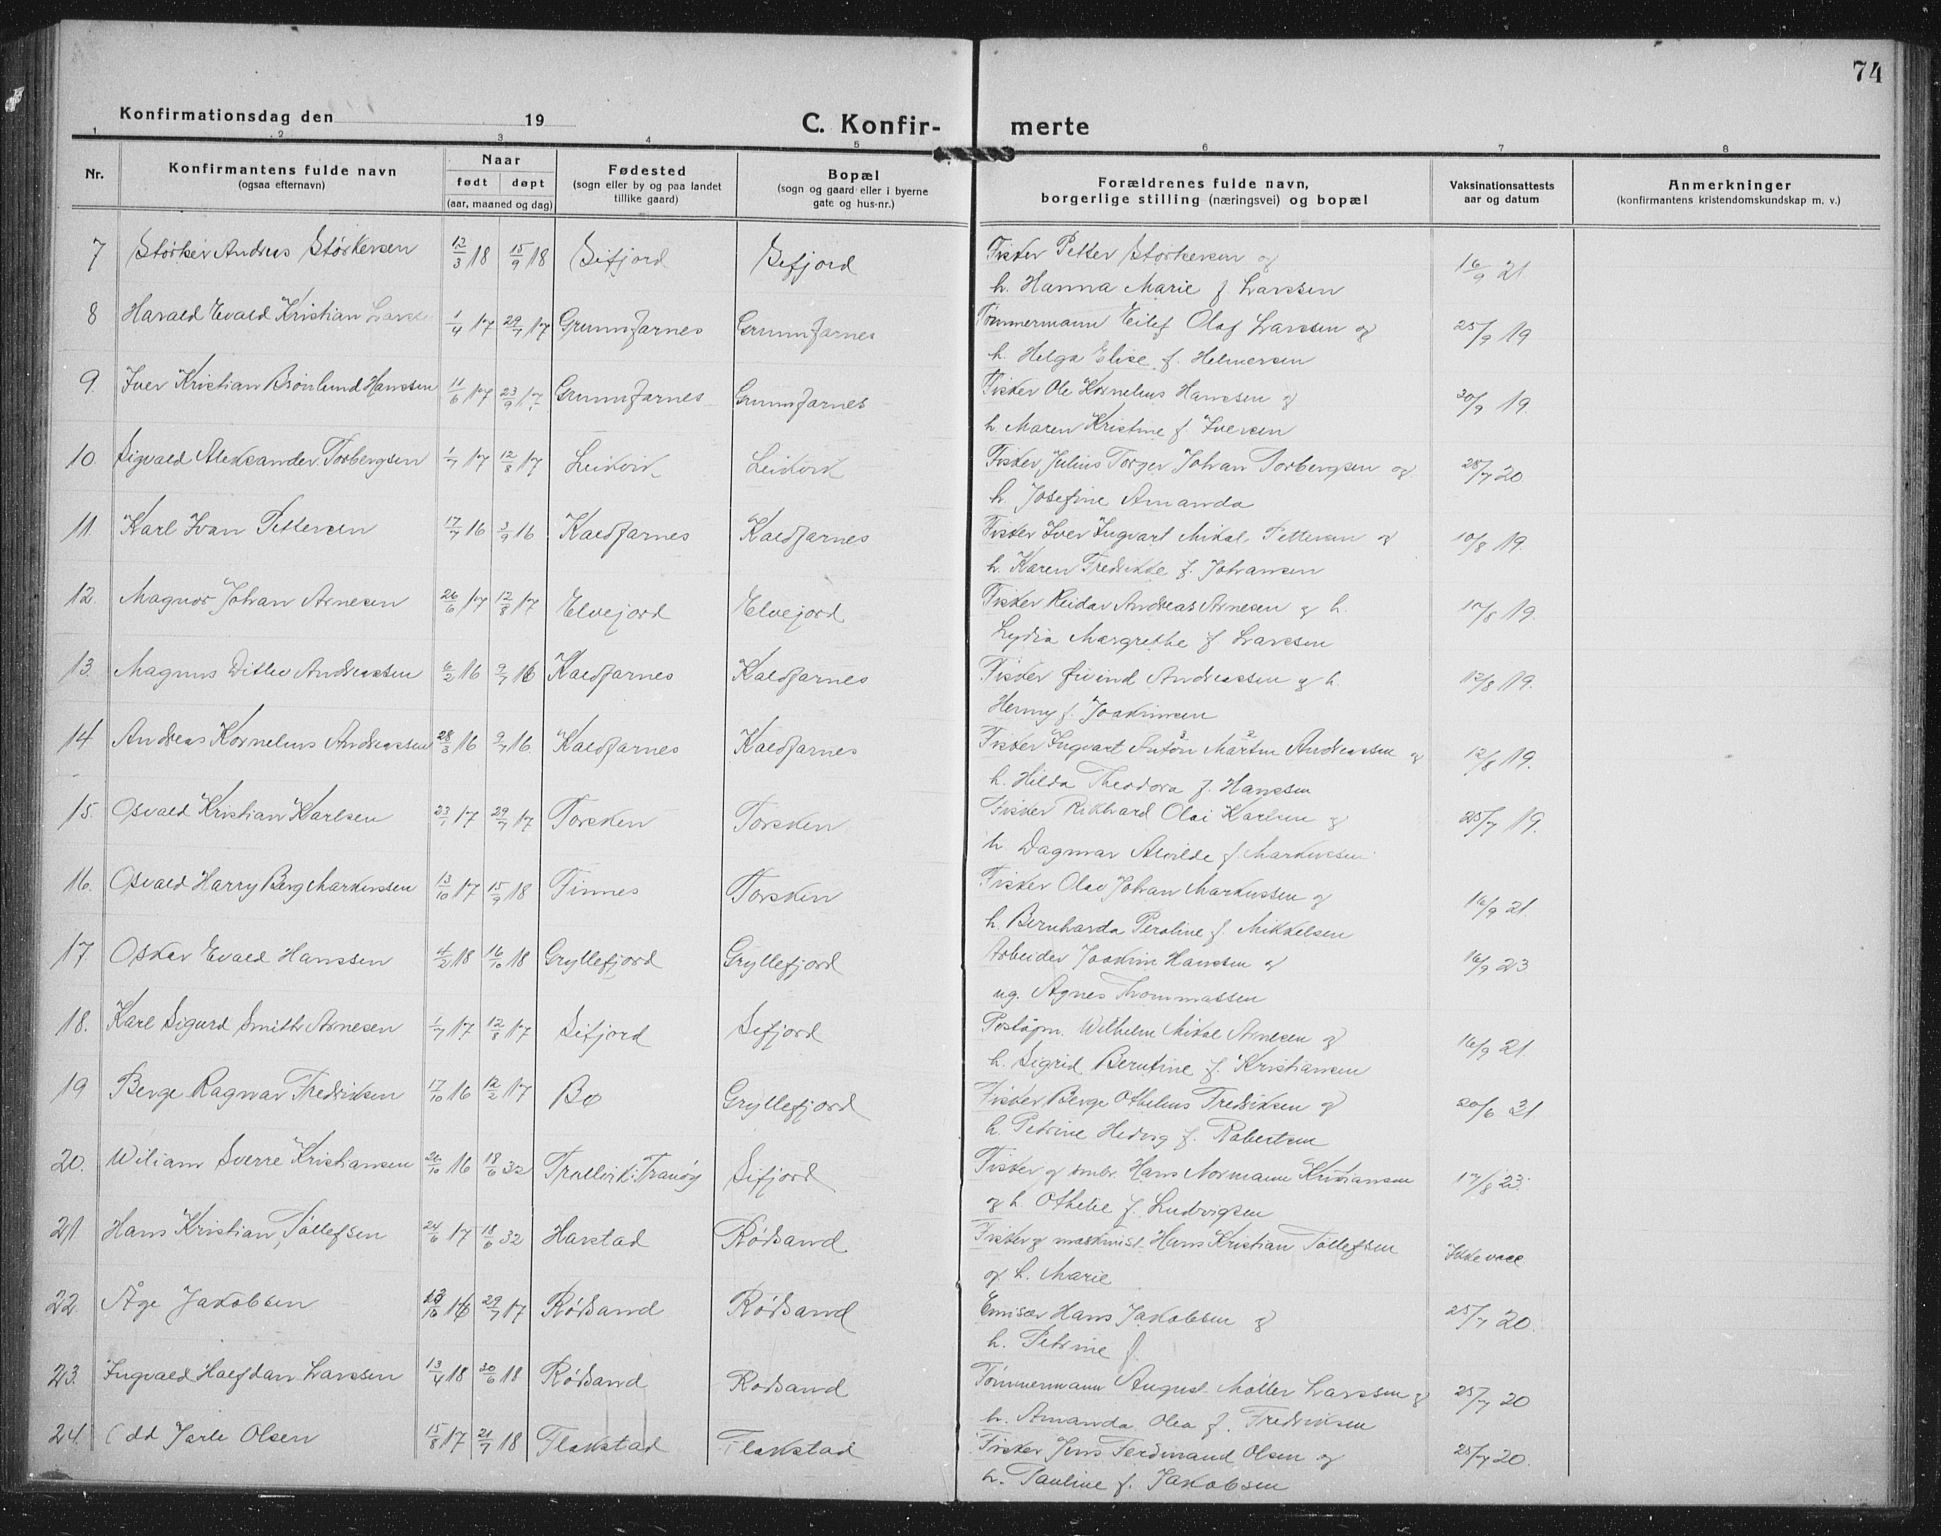 74
Konfirmationsdag den 19
C. Konfir- merte
1 2 3 4 5 6 7 8
Nr. Konfirmantens fulde navn (ogsaa efternavn) Naar født døpt (aar, maaned og dag) Fødested (sogn eller by og paa landet tillike gaard) Bopæl (sogn og gaard eller i byerne gate og hus-nr.) Forældrenes fulde navn, borgerlige stilling (næringsvei) og bopæl Vaksinationsattests aar og datum Anmerkninger (konfirmantens kristendomskundskap m. v.)
7 Størker Andreas Størkersen 12/3 18 15/9 18 Sifjord Sifjord Fisker Petter Størkersen og 16/9 21
h. Hanna Marie f. Larssen
8 Harald Evald Kristian Larss 1/4 17 29/7 17 Grunnfarnes Grunnfarnes Tømmermann Eilef Olaf Larssen og 25/9 19
h. Helga Elise f. Helmersen
9. Iver Kristian Brønlund Hanssen 11/6 17 23/9 17. Grunnfarnes Grunnfarnes Fisker Ole Kornelius Hanssen og 20/9 19.
h. Maren Kristine f. Iversen
10. Sigvald Aleksander Torbergsen 1/7 17 12/8 17 Leikvik Leikvik Fisker Julius Torger Johan Torbergsen og 28/7 20.
h. Josefine Amanda
11. Karl Ivan Pettersen 17/7 16 3/9 16 Kaldfarnes Kaldfarnes Fisker Iver Ingvart Mikal Pettersen og 10/8 19.
h. Karen Fredrikke f. Johansen
12. Magnor Johan Arnesen 26/6 17 12/8 17 Elvejord Elvejord Fisker Reidar Andreas Arnesen og h. 17/8 19.
Lydia Margrethe f. Larssen
13. Magnus Ditlev Andreassen 6/2 16 9/7 16 Kaldfarnes Kaldfarnes Fisker Øivind Andreassen og h. 12/8 19.
Henny f. Joakimsen
14 Andreas Kornelius Andreassen 28/3 16 9/7 16. Kaldfarnes Kaldfarnes Fisker Ingvart Anton 3 Martin 2 Andreassen og 12/8 19.
h. Hilda Theodora f. Hanssen
15. Osvald Kristian Karlsen 23/1 17 29/7 17 Torsken Torsken Fisker Rikhard Olai Karlsen og 25/7 19.
h. Dagmar Alvilde f. Markussen
16. Osvald Harry Berg Markussen 13/10 17 15/9 18 Finnes Torsken Fisker Olav Johan Markussen og 16/9 21.
h. Bernharda Peroline f. Mikkelsen
17 Oskar Evald Hanssen 4/2 18 16/10 18 Gryllefjord Gryllefjord Arbeider Joakim Hanssen og 16/9 23
ug. Agnes Thommassen
18. Karl Sigurd Smith Arnesen 1/7 17 12/8 17 Sifjord Sifjord Postopm. Wilhelm Mikal Arnesen og 16/9 21.
h. Sigrid Berntine f. Kristiansen
19 Berge Ragnar Fredriksen 17/10 16 12/2 17 Bø Gryllefjord Fisker Berge Othelius Fredriksen og 20/6 31
h. Petrine Hedvig f. Robertsen
20. Wiliam Sverre Kristiansen 26/10 16 18/6 32 Trollvik: Tranøy Sifjord Fisker og smbr. Hans Normann Kristiansen 17/8 23.
og h. Othelie f. Ludvigsen
21 Hans Kristian Tollefsen 24/6 17 18/6 32 Harstad Rødsand Fisker og maskinist Hans Kristian Tollefsen Ikke vacc
og h. Marie
22. Åge Jakobsen /10 16 29/7 17 Rødsand Rødsand Emisær Hans Jakobsen og 25/7 20.
h. Petrine f.
23. Ingvald Halfdan Larssen 13/4 18 30/6 18 Rødsand Rødsand Tømmermann August Møller Larssen og 25/7 20
h. Amanda Olea f. Fredriksen
24. Odd Jarle Olsen 15/8 17 21/7 18 Flakstad Flakstad Fisker Jens Ferdinand Olsen og 25/7 20.
h. Pauline f. Jakobsen